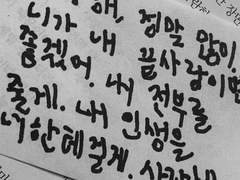 해, 정말 많이.
니가 내 끝사랑이면
좋겠어. 내 전부를
줄게. 내 인생을
너한테 걸게.